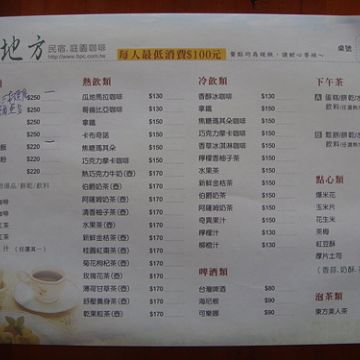 地方 民宿.庭園咖啡
http://www.bpc.com.tw
每人最低消費$100元
桌號
$250
$250
$250
$250
飯 $220
粉 $220
$220
熱飲類
瓜地馬拉咖啡 $130
哥倫比亞咖啡 $130
拿鐵 $150
卡布奇諾 $150
焦糖瑪其朵 $150
巧克力摩卡咖啡 $150
熱巧克力牛奶(壺) $170
伯爵奶茶(壺) $170
阿薩姆奶茶(壺) $170
清香柚子茶(壺) $170
水果茶(壺) $170
新鮮金桔茶(壺) $170
桂圓紅棗茶(壺) $170
菊花枸杞茶(壺) $170
玫瑰花茶(壺) $170
薄荷甘草茶(壺) $170
舒壓養身茶(壺) $170
乾果紅茶(壺) $170
冷飲類
香醇冰咖啡 $130
拿鐵 $150
焦糖瑪其朵 $150
巧克力摩卡咖啡 $150
香草冰淇淋咖啡 $150
檸檬香柚子茶 $150
水果茶 $150
新鮮金桔茶 $150
伯爵奶茶 $150
阿薩姆奶茶 $150
奇異果汁 $150
檸檬汁 $130
柳橙汁 $130
啤酒類
台灣啤酒 $80
海尼根 $90
可樂娜 $90
下午茶
點心類
爆米花
玉米片
花生米
茶梅
紅豆酥
厚片土司
泡茶類
東方美人茶